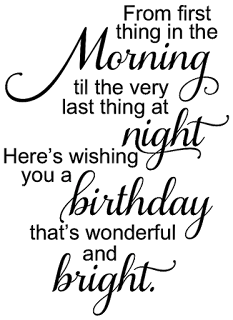 From first
thing in the
Morning
til the very
last thing at
night
Here's wishing
you a
birthday
that's wonderful
and
bright.